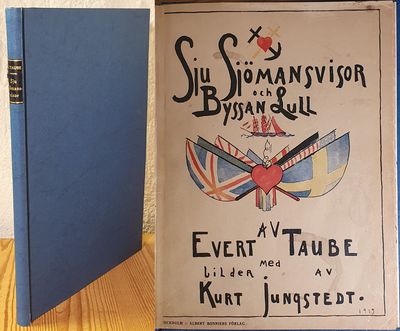 TAUBE
SJU
Sju Sjömansvisor
och
Byssan Lull
AV
Evert Taube
bilder med AV
Kurt Jungstedt.
1919
STOCKHOLM · ALBERT BONNIERS FÖRLAG.